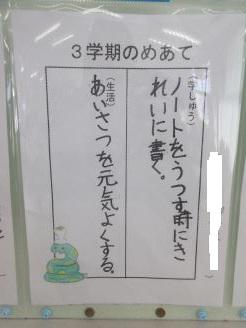 3学期のめあて
(学しゅう)
ノートをうつす時にき
れいに書く。
(生活)
あいさつを元気よくする。